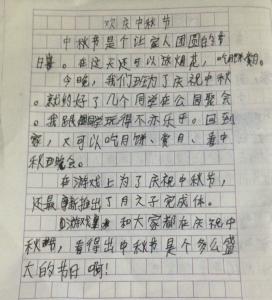 欢庆中秋节
中秋节是个让家人团圆的节
日。在这天还可以放烟花,吃月饼、赏月。
今晚,我们班为了庆祝中秋
。就约好了几个同学在公园聚会
。我跟同学玩得不亦乐乎。回到
家,又可以吃月饼、赏月、看中
秋晚会。
在游戏上为了庆祝中秋节,
还最新推出了月之子完成体。
游戏里 和大家都在庆祝中
秋节,看得出中秋节是个多么盛
大的节日啊!